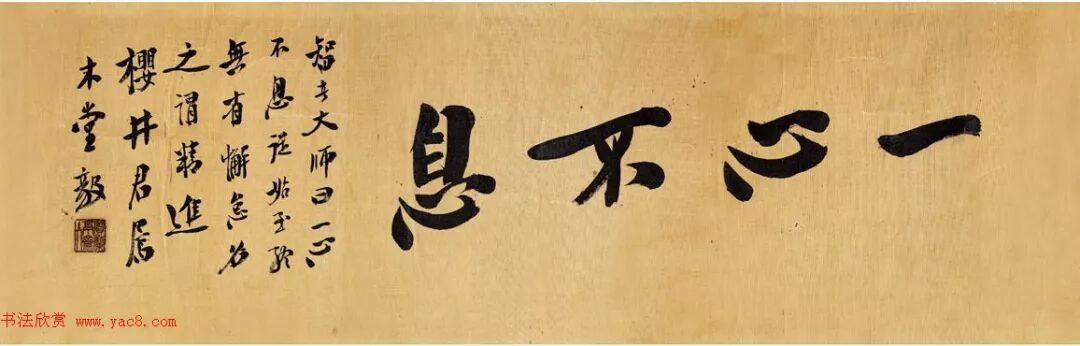 一心不息
智者大師曰一心
不息從始至終
無有懈怠名
之謂精進
櫻井君屬
木堂毅
书法欣赏 www.yac8.com